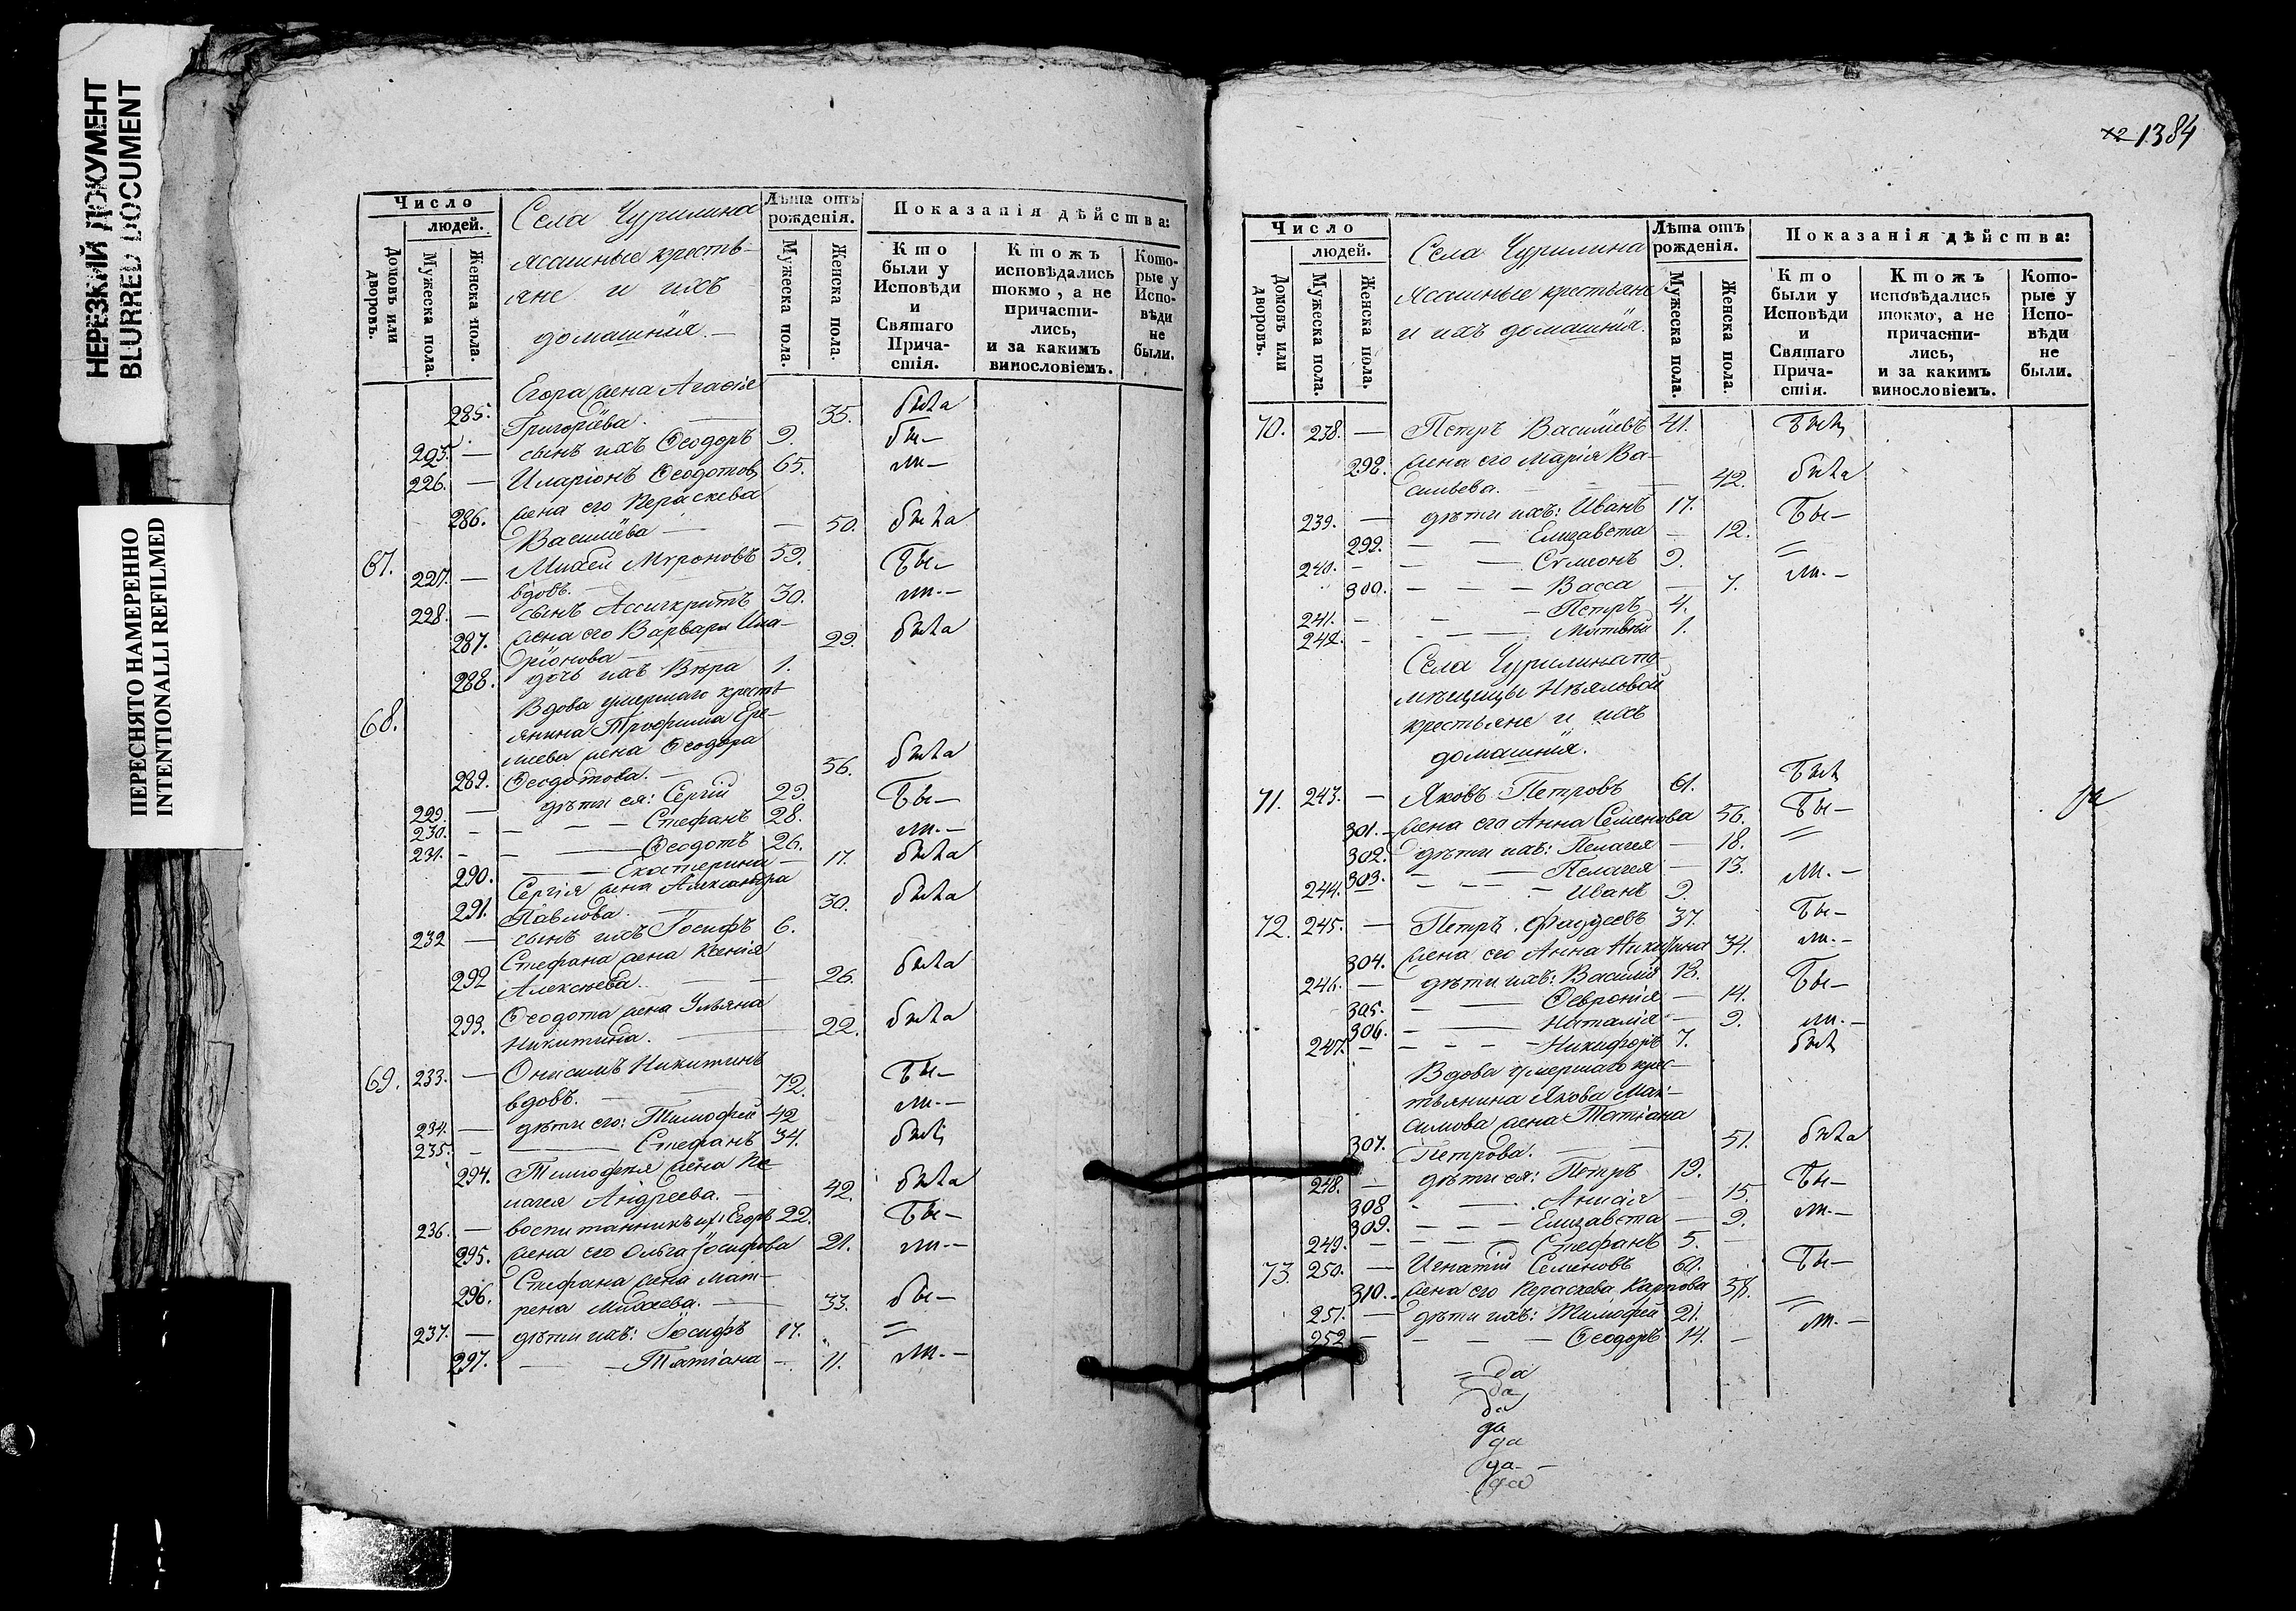 НЕРЕЗКИЙ ДОКУМЕНТ
BLURRED DOCUMENT
ПЕРЕСНЯТО НАМЕРЕННО
INTENTIONALLI REFILMED
Число
людей.
Домовъ или дворовъ.
Мужеска пола.
Женска пола.
Села Чурилина
ясашные крестъ-
яне и ихъ
домашнія.
Лѣта отъ рожденія.
Мужеска пола.
Женска пола.
Показанія дѣйства:
Кто были у Исповѣди и Святаго Прича-стія.
Ктожъ исповѣдались токмо, а не причасти-лись, и за какимъ винословіемъ.
Кото-рые у Испо-вѣди не были.
Егора жена Агафія
285. Григоріева. 35. была
225. — сынъ ихъ Ѳеодоръ 9. бы—
226. — Иларіонъ Ѳеодотовъ 65. ли—
жена его Параскева
286. Василіева — 50. была
67. 227. — Михей Мѵроновъ 59. Бы—
вдовъ.
228. — сынъ Ассигкритъ 30. ли.—
287. жена его Варвара Ила-
ріонова 29. была
288. дочь ихъ Вѣра 1.
68. Вдова умершаго кресть
янина Трофима Ере-
меева жена Ѳеодора
289. Ѳеодотова. — 56. была
229. — дѣти ея: Сергій 29. Бы—
230. — — — Стефанъ 28.
231. — — Ѳеодотъ 26. ли.—
290. — — Екатерина — 17. была
Сергія жена Александра
291. Павлова. 30. была
232 — сынъ ихъ Іосифъ 6.
Стефана жена Ксенія
292 Алексѣева. — — 26. была
Ѳеодота жена Ульяна
293. Никитина. — 22. была
69. 233. — Онисимъ Никитинъ
вдовъ. — 72. Бы—
234. — дѣти его: Тимофей 42 ли.—
235. — — Стефанъ 34. былъ
294. Тимофея жена Пе-
лагея Андреева. — 42. была
236. — воспитанникъ их: Егоръ 22. Бы—
295. жена его Ольга Іосифова 21. ли.—
Стефана жена Мат-
296. рена Михеева. — 33. бы—
237. — дѣти ихъ: Іосифъ 17. =
297. — — Татіана — 11. ли.—
1384
Число
людей.
Домовъ или дворовъ.
Мужеска пола.
Женска пола.
Села Чурилина
Ясашные крестьяне
и ихъ домашнія.
Лѣта отъ рожденія.
Мужеска пола.
Женска пола.
Показанія дѣйства:
Кто были у Исповѣди и Святаго Прича-стія.
Ктожъ исповѣдались токмо, а не причасти-лись, и за какимъ винословіемъ.
Кото-рые у Испо-вѣди не были.
70. 238. — Петръ Василіевъ 41. Былъ
298. жена его Марія Ва-
сильева. — 42. была
239. — дѣти ихъ: Иванъ 17. Бы—
299. — — Елизавета — 12. =
240. — — Сѵмеонъ 9.
300. — — — Васса — 7. ли.—
241. — — Петръ 4.
242. — — Матвѣй 1.
Села Чурилина по-
мѣщицы Нѣяловой
крестьяне и ихъ
домашнія.
71. 243. — Яковъ Петровъ 61. Былъ
301. — жена его Анна Семенова 56. Бы—
302. дѣти ихъ: Пелагея — 18. =
303. — — Пелагея — 13.
244. — — — Иванъ 9. ли.—
72. 245. — Петръ Фаддеевъ 37. Бы—
304. жена его Анна 34. ли.—
246. — дѣти ихъ: Василій 18. Бы—
305. — — Ѳевронія — 14.
306. — — Наталія — 9. ли.—
247. — — — Никифоръ 7. былъ
Вдова умершаго крес-
тьянина Якова Мак-
симова жена Татіана
307. Петрова. — 51. была
248. — дѣти ея: Петръ 19. Бы—
308 — — Анисія — 15.
309. — — — Елизавета — 9. ли.—
249. — — — Стефанъ 5. —
73. 250. — Игнатій Семеновъ 60. Бы—
310. — жена его Параскева Карпова 38.
251. — дѣти ихъ: Тимофей 21. =
252 — — — Ѳеодоръ 14. — ли.—
да
да
да
да
да
да
да